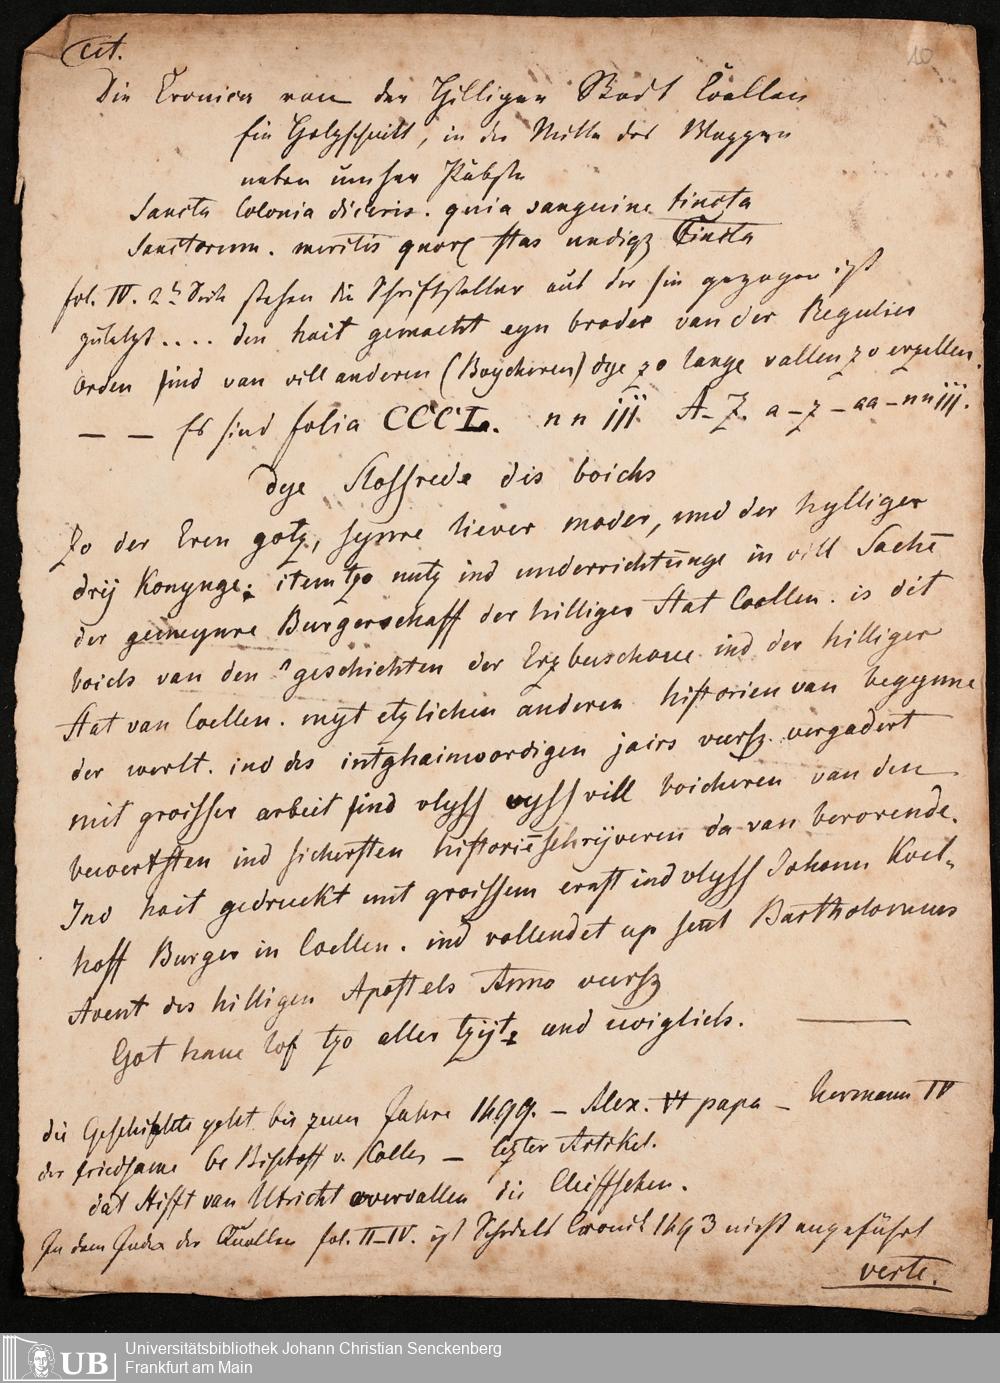 cit.
10
Die Cronica van der Hilliger Stadt Coellen
Ein Holzschnitt, in der Mitte das Wappen
neben
Sancta Colonia diceris. quia sanguine tincta
Sanctorum. meritis quorum stas undiqz tincta
fol. IV. 2te Seite stehen die Schriftsteller aus der sie gezogen ist
zuletzt .... den hait gemacht eyn broder van der Regulier
orden ind van vill anderen (Boycheren) dye zo lange vallen zo erzellen.
— — Es sind folia CCCL. nn iij A–Z. a–z–aa–nn iij.
dye Slossrede dis boichs
Zo der Eren gotz, synre liever moder, und der hylliger
drij Konynge: item tzo nutz ind underrichtunge in vill Sachē
der gemeynre Burgerschaff der hilliger Stat Coellen. is dit
boich van den geschichten der Erzbuschove ind der hilliger
Stat van Coellen. myt etzlichen anderen historien van begynne
der werlt. ind des intghainwordigen jairs vursz. vergadert
mit groisser arbeit ind vlyss uyss vill boicheren van den
bewertsten ind sichersten historiē schryveren da van berorende.
Ind hait gedruckt mit groissem ernst ind vlyss Johann Koel-
hoff Burger in Coellen. ind vollendet up sent Bartholomeus
Avent des hilligen Apostels Anno vursz
Got have lof tzo aller tzijt und ewiglich. —
die Geschichte geht bis zum Jahre 1499. — Alex. VI papa — Hermann IV
der friedsame Bischoff v. Collen — lezter Artikel.
dat Stifft van Utricht overvallen die Cleiffschen.
In dem Index der Quellen fol. II–IV. ist Schedels Cronik 1493 nicht angeführt
verte.
Universitätsbibliothek Johann Christian Senckenberg
Frankfurt am Main
UB